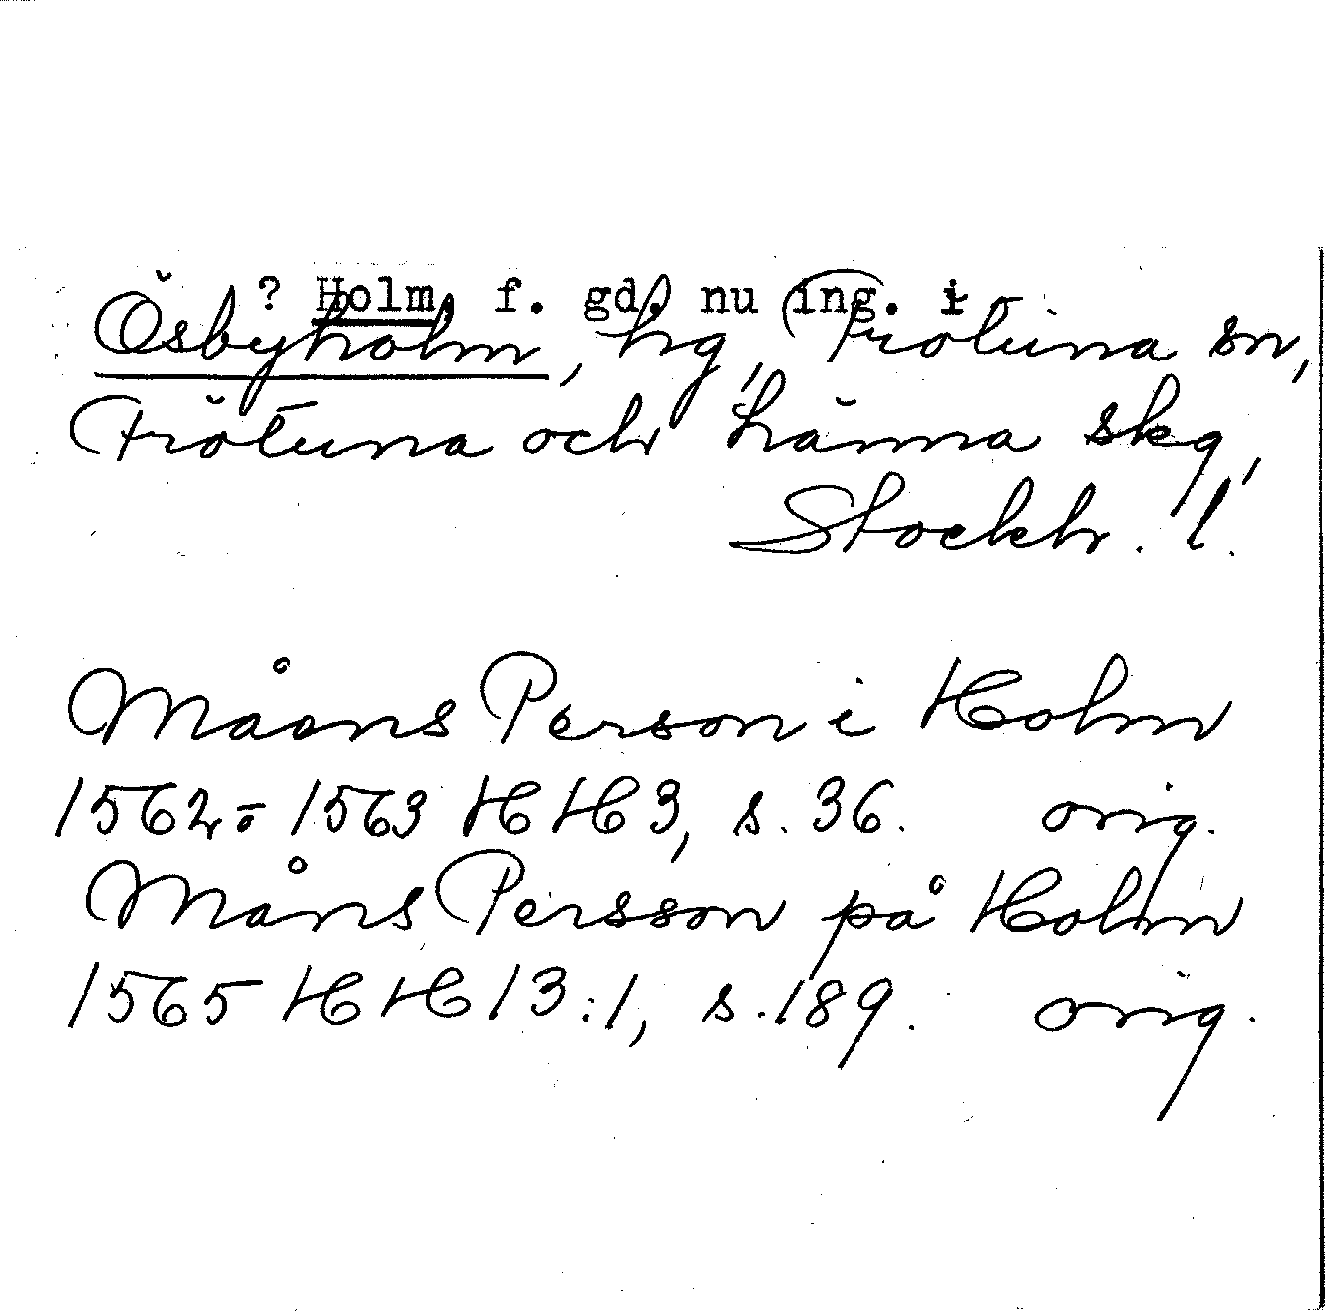 ? Holm, f. gd. nu ing. i
Ösbyholm, hg, Frötuna sn,
Frötuna och Länna skg,
Stockh. l.
Måens Person i Holm
1562-1563 HH 3, s. 36. orig.
Måns Persson på Holm
1565 HH 13:1, s. 189. orig.